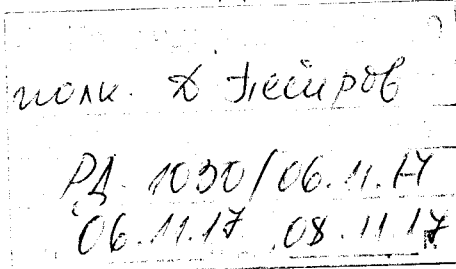 полк. Д Петров
РД 1030/06.11.17
06.11.17 08.11.17